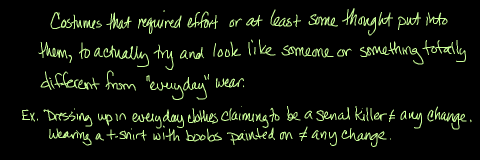 Costumes that required effort or at least some thought put into
them, to actually try and look like someone or something totally
different from "everyday" wear.
Ex. Dressing up in everyday clothes claiming to be a serial killer ≠ any change.
Wearing a t-shirt with boobs painted on ≠ any change.